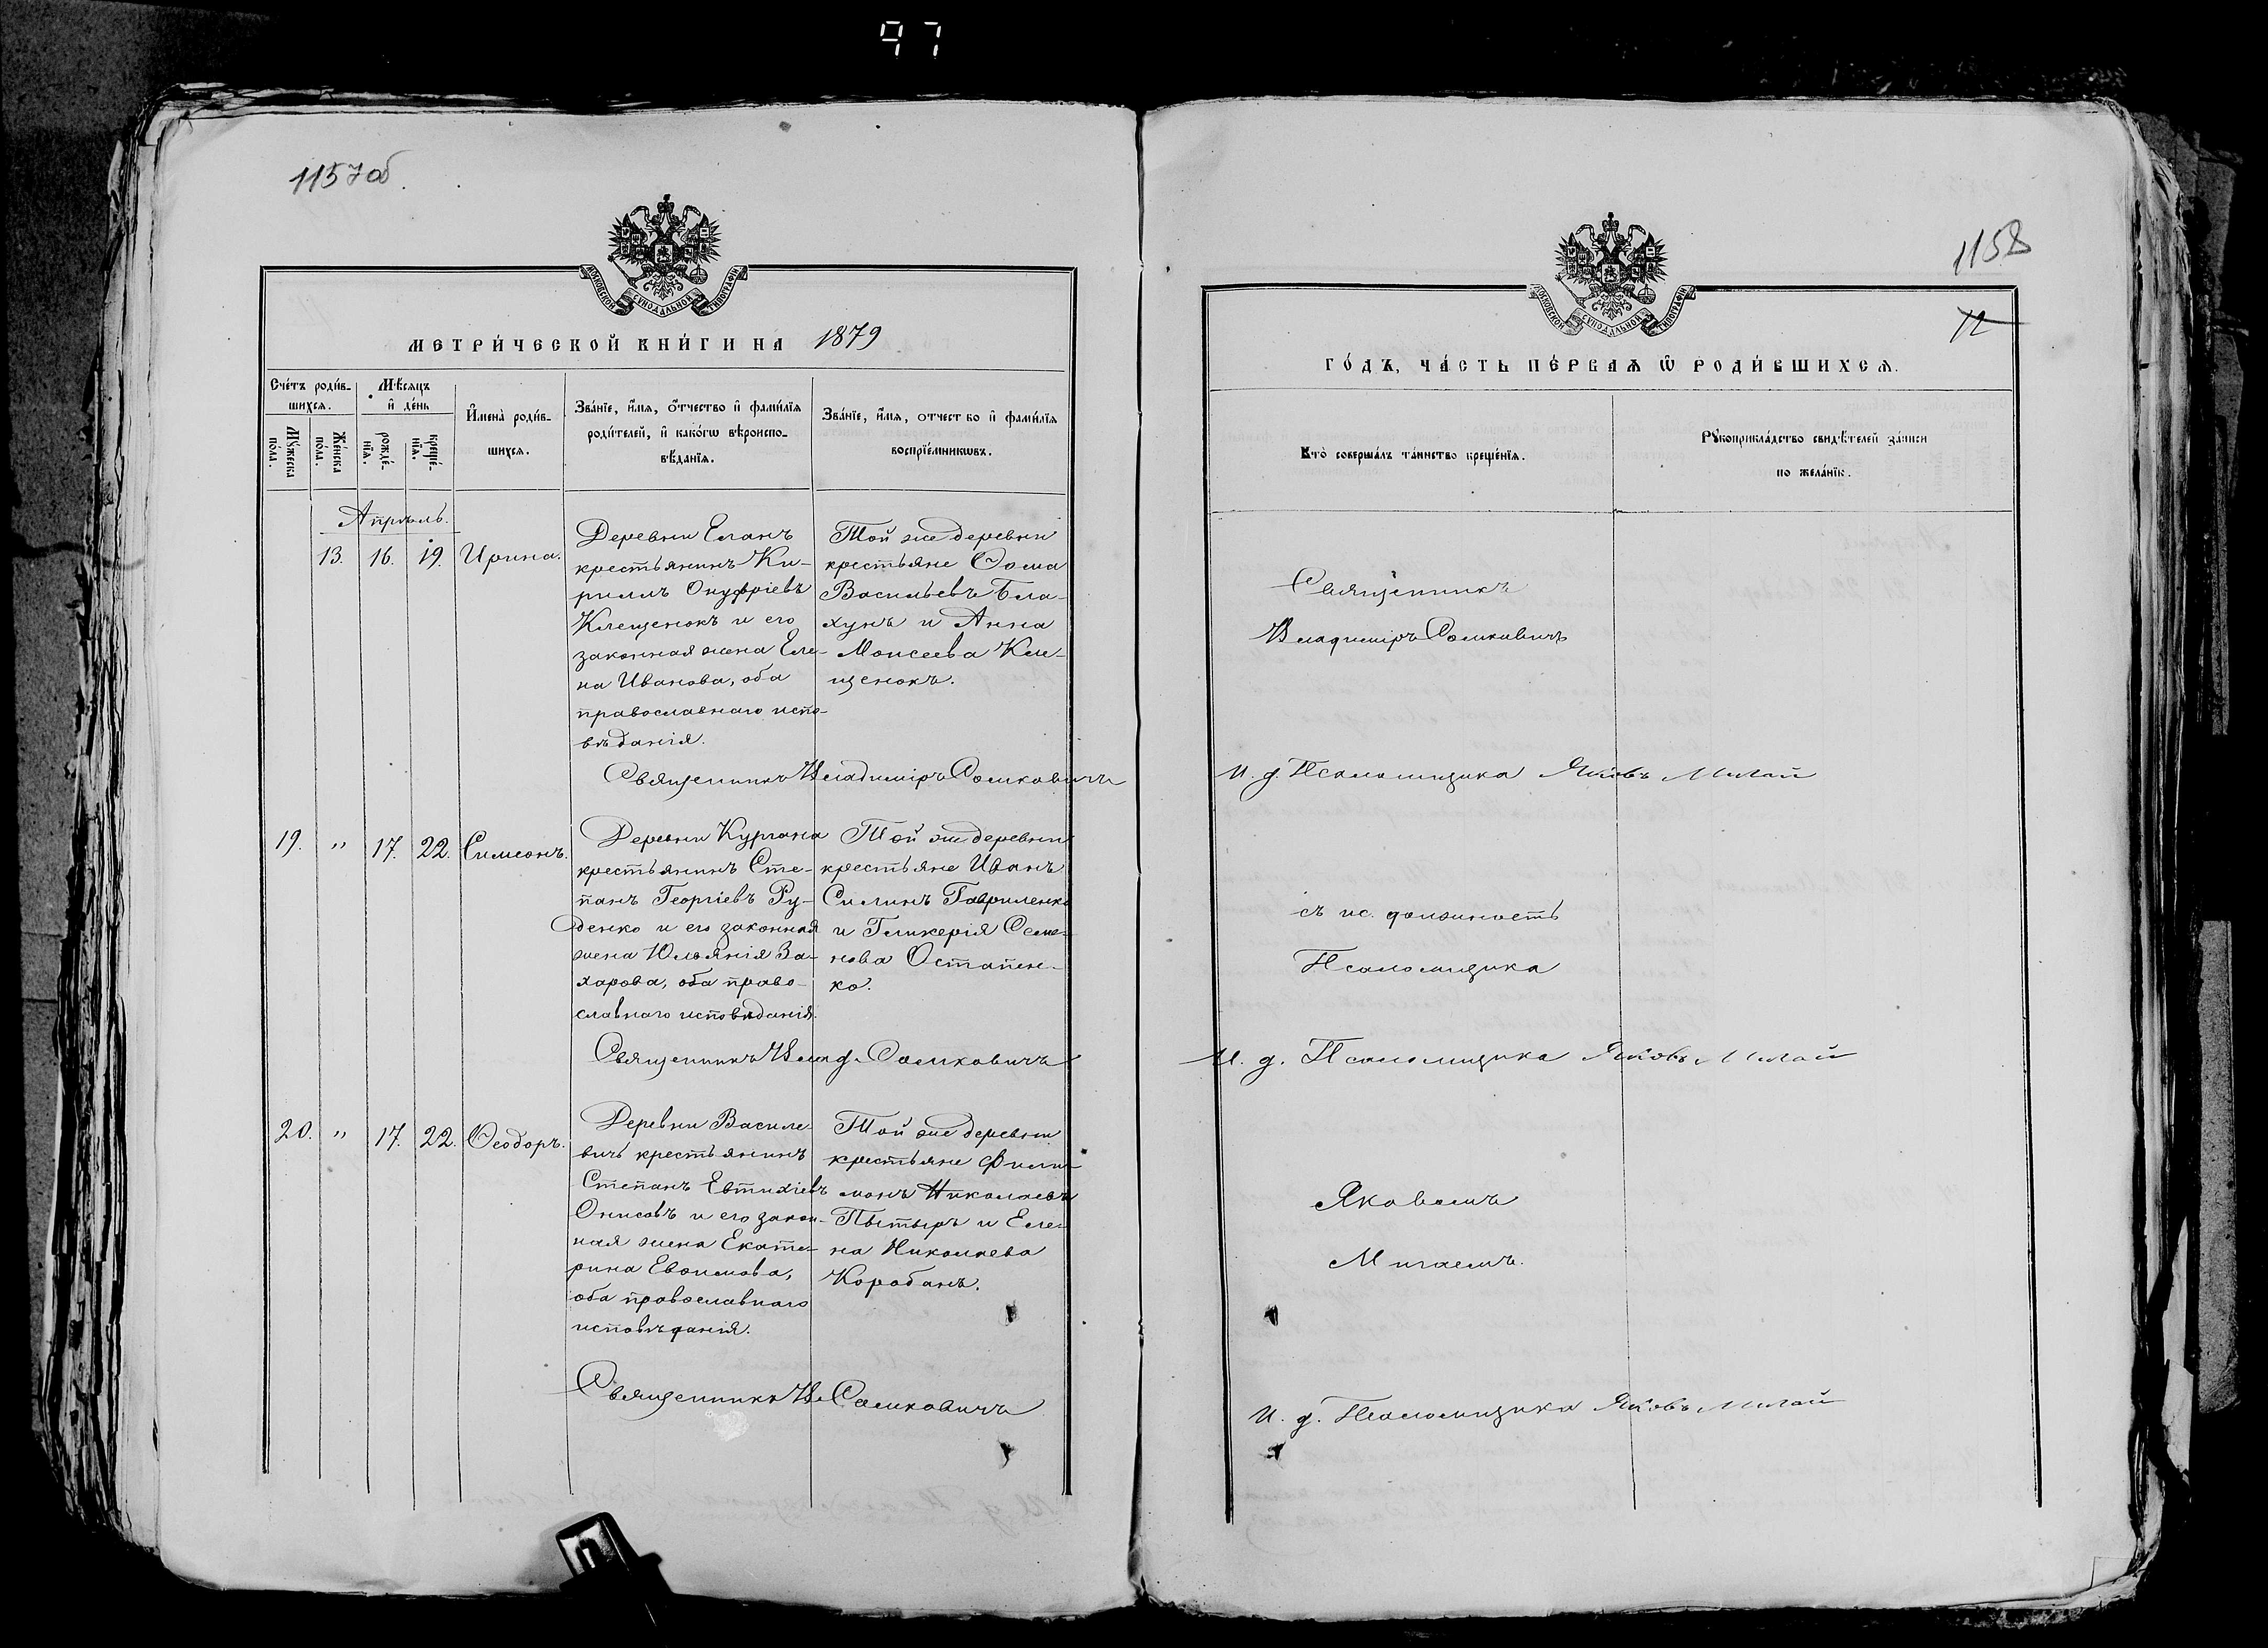 97
1157 об.
МОСКОВСКОЙ СѴНОДАЛЬНОЙ ТИПОГРАФІИ
МЕТРИ́ЧЕСКОЙ КНИ́ГИ НА 1879
Сче́тъ роди́в-
шихся.
Мѣ́сяцъ
и҆ де́нь
Мꙋ́жеска по́ла.
Же́нска по́ла.
рожде́-нїѧ.
креще́-нїѧ.
И҆мена̀ роди́в-
шихся.
Зва́нїе, и҆́мѧ, ѻ҆́тчество и҆ фами́лїѧ
роди́телей, и҆ како́гѡ вѣроиспо-
вѣ́данїѧ.
Зва́нїе, и҆́мѧ, отчество и҆ фами́лїѧ
воспрїе́мникѡвъ.
Апрѣль.
13. 16. 19. Ирина.
Деревни Еланъ
крестьянинъ Ки-
риллъ Онуфріевъ
Клещенокъ и его
законная жена Еле-
на Иванова, оба
православнаго испо-
вѣданія.
Той же деревни
крестьяне Ѳома
Васильевъ Бла-
хунъ и Анна
Моисеева Кле-
щенокъ.
Священникъ Владиміръ Сомковичъ
19. " 17. 22. Симеонъ.
Деревни Кургана
крестьянинъ Сте-
панъ Георгіевъ Ру-
денко и его законная
жена Юльянія За-
харова, оба право-
славнаго исповѣданія.
Той же деревни
крестьяне Иванъ
Силинъ Гавриленко
и Гликерія Семе-
нова Остапен-
ко.
Священникъ Влад. Сомковичъ
20. " 17. 22. Ѳеодоръ.
Деревни Василе-
вичъ крестьянинъ
Степанъ Евтихіевъ
Онисовъ и его закон-
ная жена Екате-
рина Евѳимова,
оба православнаго
исповѣданія.
Той же деревни
крестьяне Фили-
монъ Николаевъ
Пытыръ и Еле-
на Николаева
Коробанъ.
Священникъ Вл. Сомковичъ
1158
12
МОСКОВСКОЙ СѴНОДАЛЬНОЙ ТИПОГРАФІИ
ГО́ДЪ, ЧА́СТЬ ПЕ́РВАѦ Ѡ҆ РОДИ́ВШИХСѦ.
Кто̀ соверша́лъ та́инство креще́нїѧ.
Рꙋкоприкла́дство свидѣ́телей за́писи
по жела́нїю.
Священникъ
Владиміръ Сомковичъ
И. д. Псаломщика Яковъ Мигай
съ ис. должность
Псаломщика
И. д. Псаломщика Яковъ Мигай
Яковомъ
Мигаемъ.
И. д. Псаломщика Яковъ Мигай